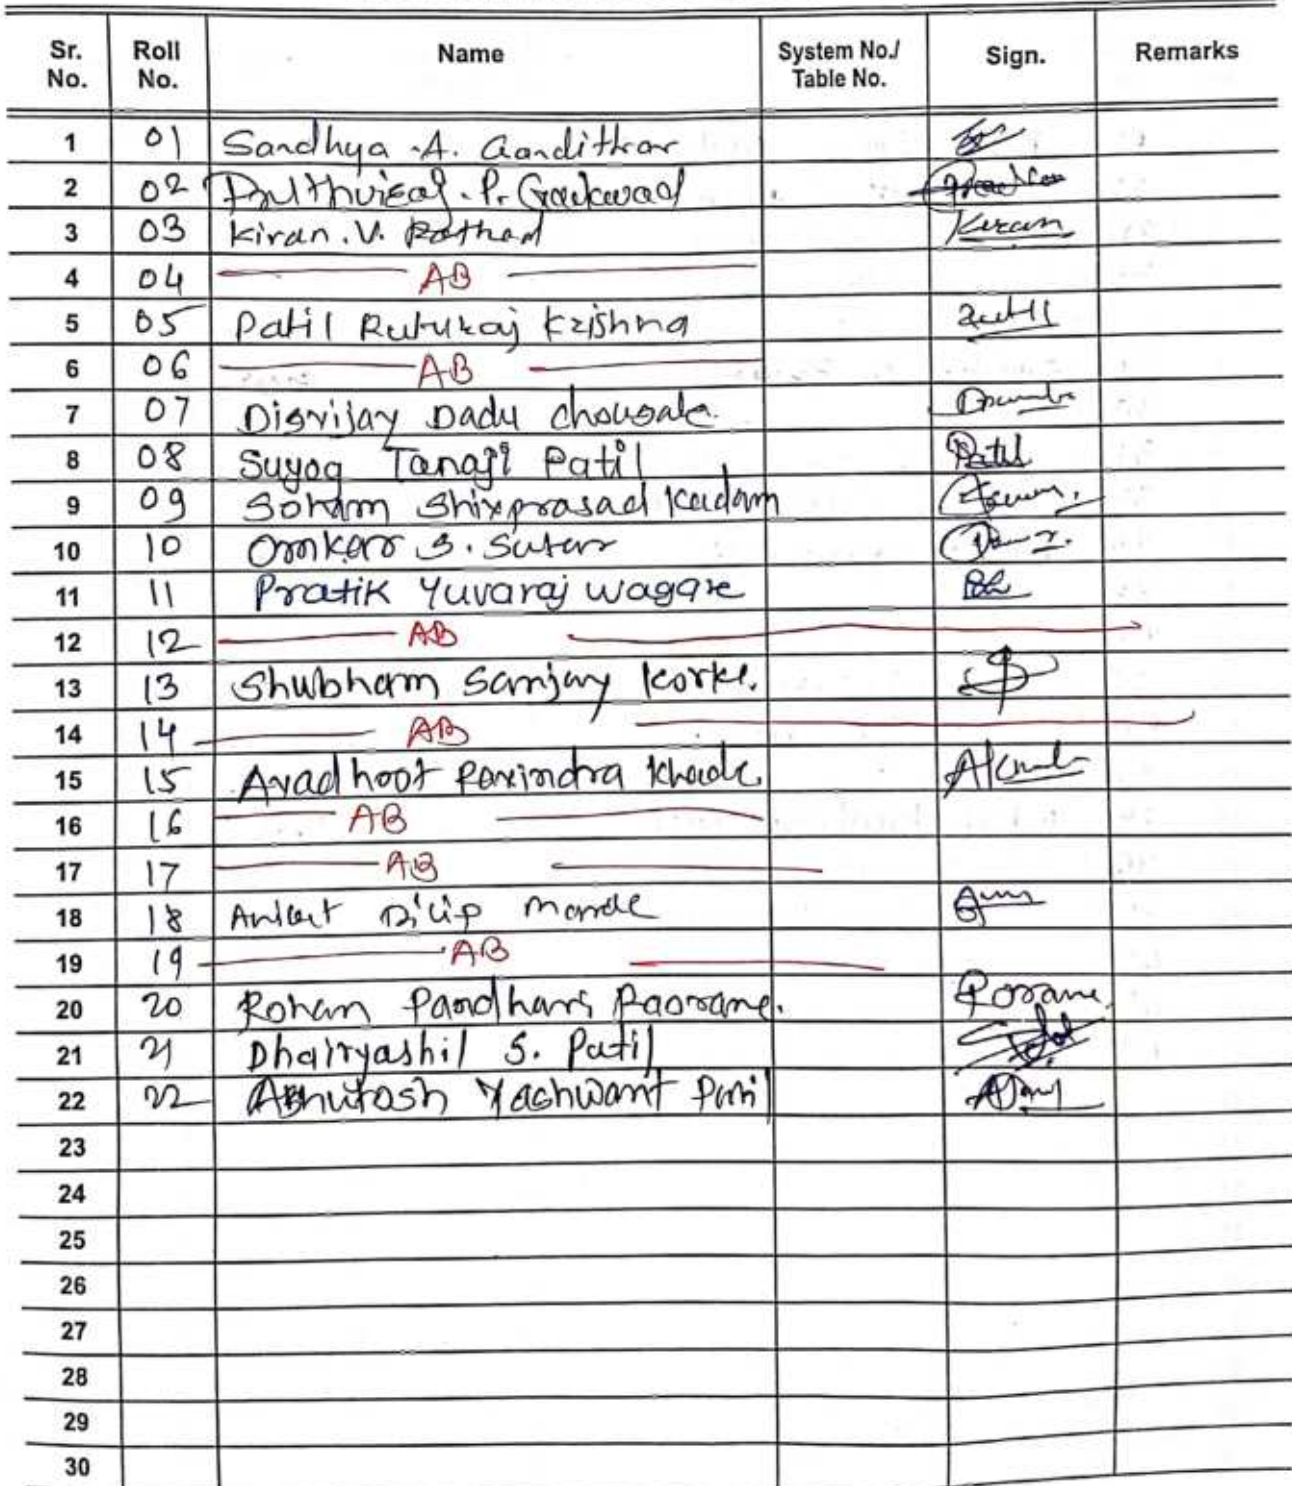 Sr. No. Roll No. Name System No./ Table No. Sign. Remarks
1 01 Sandhya .A.
2 02 P. Gaikwad
3 03 Kiran .V. Rathod Kiran
4 04 AB
5 05 Patil Ruturaj Krishna
6 06 AB
7 07 Digvijay Dadu Chougale.
8 08 Suyog Tanaji Patil Patil
9 09 Soham Shivprasad Kadam
10 10 Omkar S. Sutar
11 11 Pratik Yuvaraj Wagare
12 12 AB
13 13 Shubham Sanjay Korke.
14 14 AB
15 15 Avadhoot Ravindra Khade.
16 16 AB
17 17 AB
18 18 Aniket Dilip
19 19 AB
20 20 Rohan Pandhari
21 21 Dhairyashil S. Patil
22 22 Yashwant
23
24
25
26
27
28
29
30